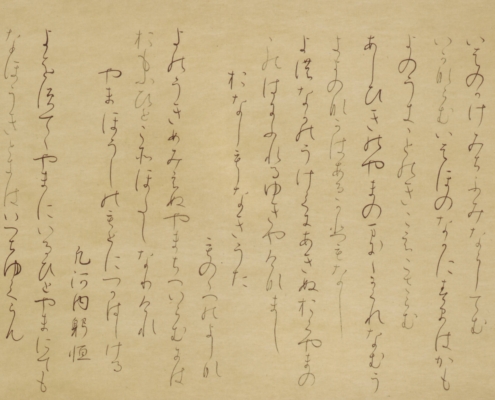 いはのかけみちふみならしてむ
いかならむいはほのなかにすまはかも
よのうきことのきこえこさらむ
あしひきのやまのまにまにかくれなむう
きよのなかはあるかひもなし
よのなかのうけくにあきぬおくやまの
このはにふれるゆきやけなまし
おなしもしなきうた
もののへのよしな
よのうきめみえぬやまちへいらむには
おもふひとこそほたしなりけれ
やまほうしのもとにつかはしける
凡河内躬恒
よをすててやまにいるひとやまにても
なほうきときはいつちゆくらん